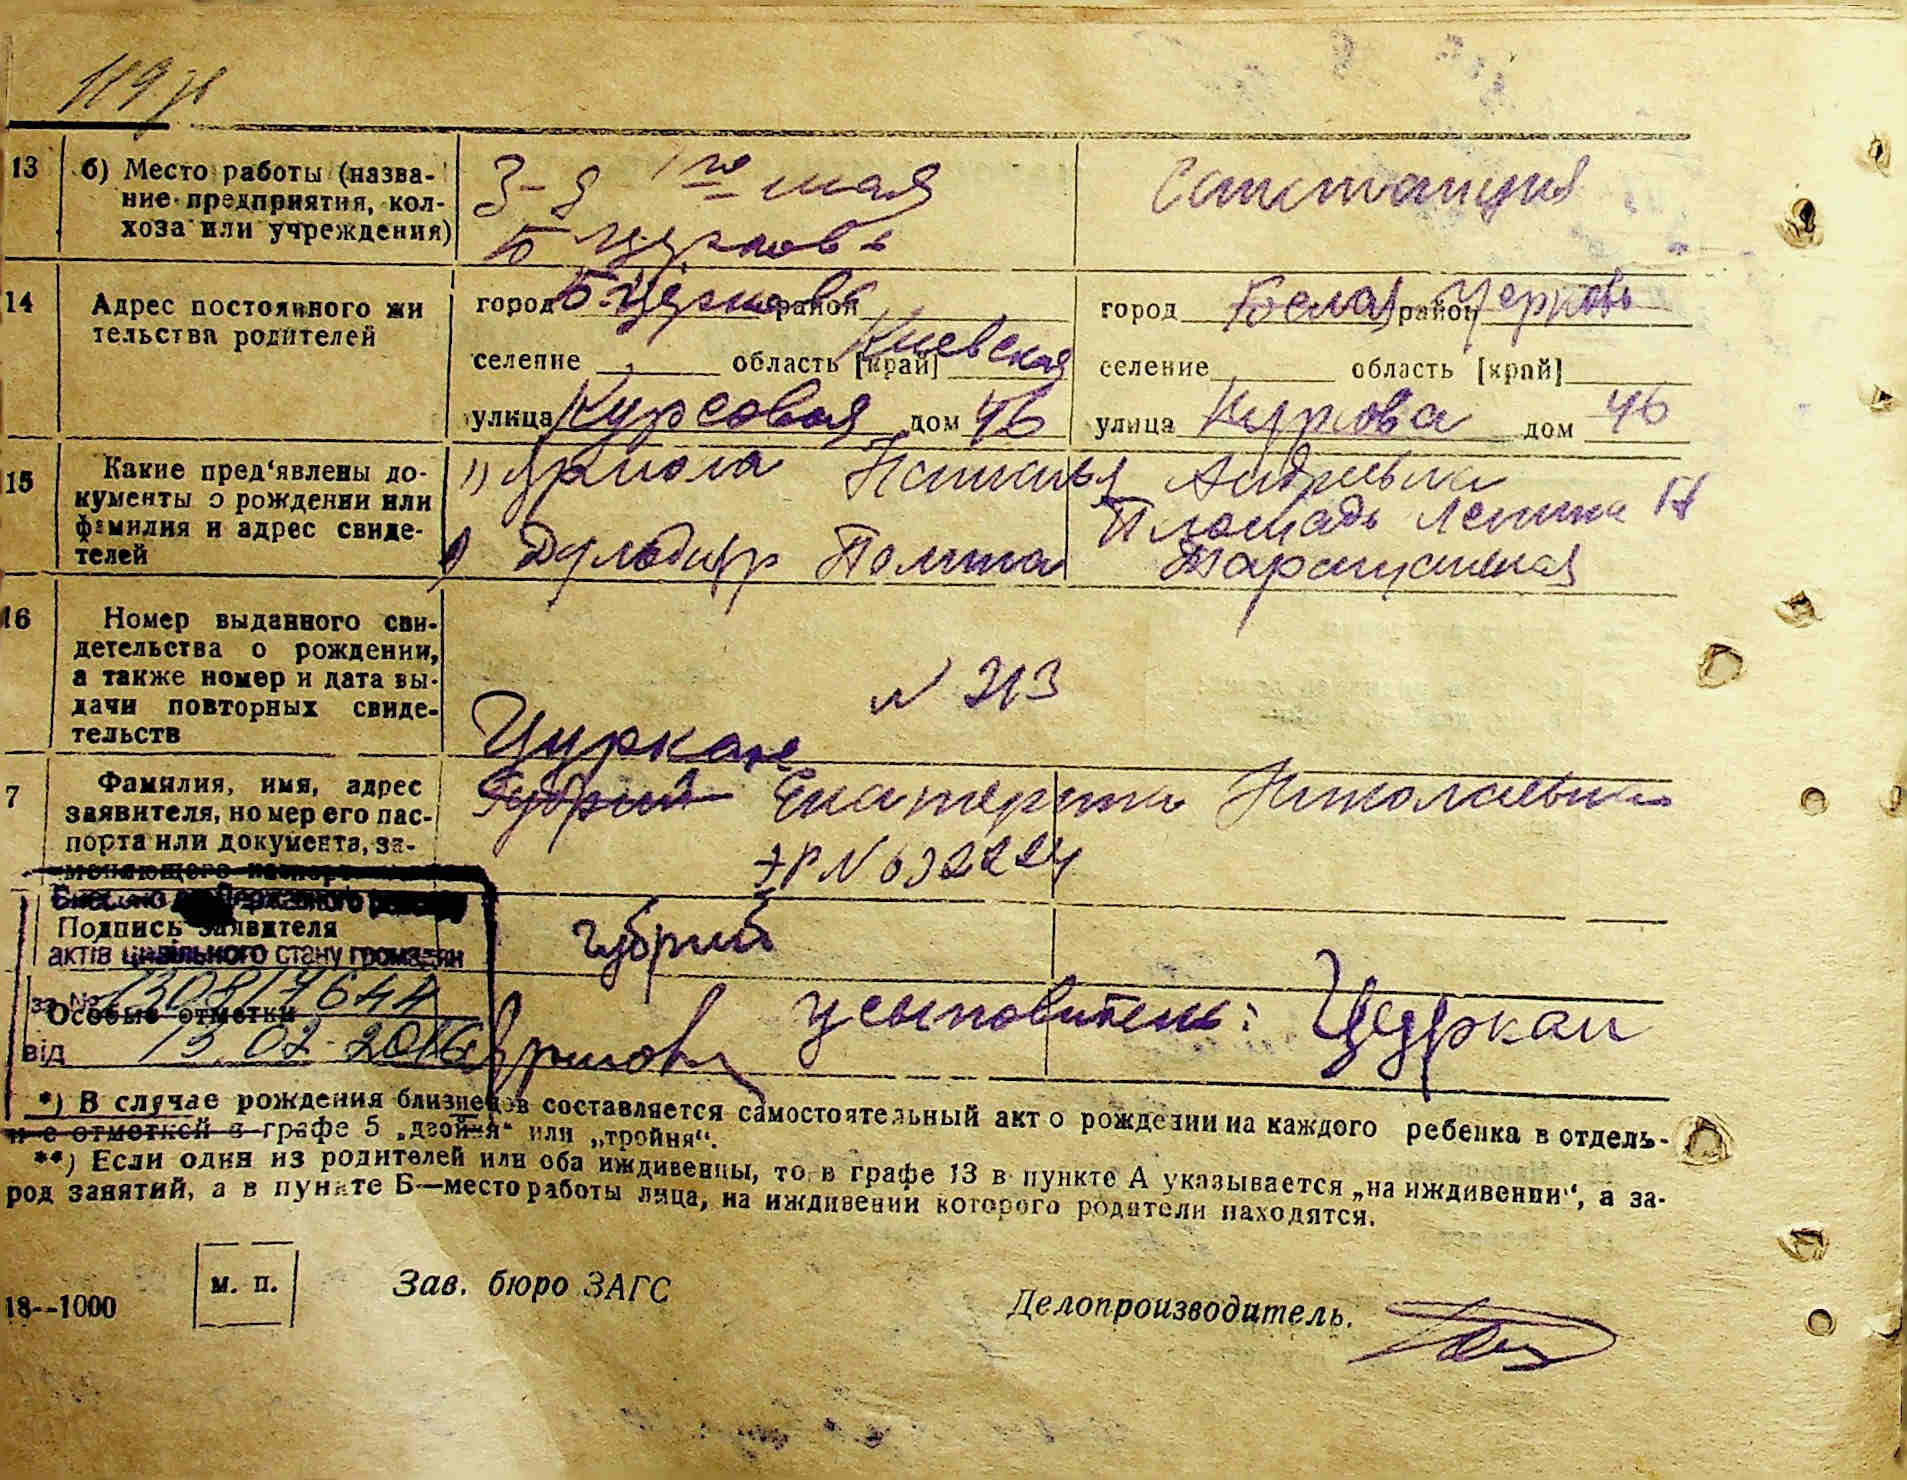 13 б) Место работы (назва-
ние предприятия, кол-
хоза или учреждения)
З-д 1го мая
Б Церковь
Санстанция
14 Адрес постоянного жи
тельства родителей
город Б. Церковь район
селение область [край] Киевская
улица Курсовая дом 46
город Белая Церковь район
селение область [край]
улица Курсова дом 46
15 Какие пред‘явлены до-
кументы о рождении или
фамилия и адрес свиде-
телей
1) Ярмола Наталья Андреевна
Площадь Ленина
Полина Таращанская
16 Номер выданного сви-
детельства о рождении,
а также номер и дата вы-
дачи повторных свиде-
тельств
N 313
Цуркан
7 Фамилия, имя, адрес
заявителя, номер его пас-
порта или документа, за-
меняющего паспорт
Губрий Екатерина Николаевна
ЭР N 632224
Подпись заявителя
Губрий
актів цивільного стану громадян
за № 1308/7644
Особые отметки
від 15.02.2016
усыновитель: Цуркан
*) В случае рождения близнецов составляется самостоятельный акт о рождении на каждого ребенка в отдель-
и с отметкой в графе 5 „двойня“ или „тройня“.
**) Если один из родителей или оба иждивенцы, то в графе 13 в пункте А указывается „на иждивении“, а за-
род занятий, а в пункте Б—место работы лица, на иждивении которого родители находятся.
м. п.
Зав. бюро ЗАГС
Делопроизводитель.
18--1000